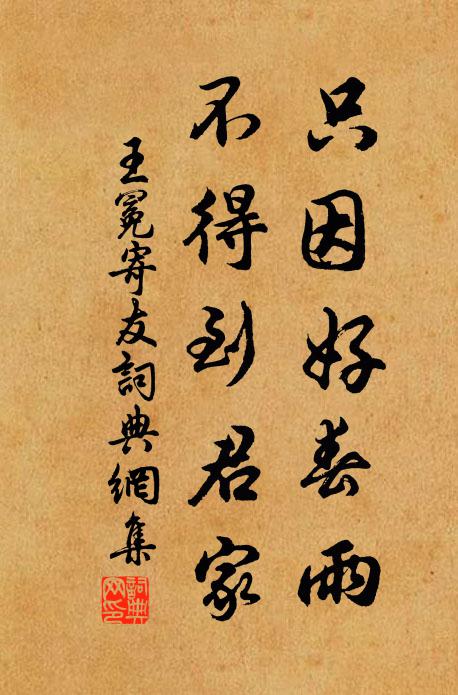 只因好春雨
不得到君家
王冕寄友詞典網集
詞典网印